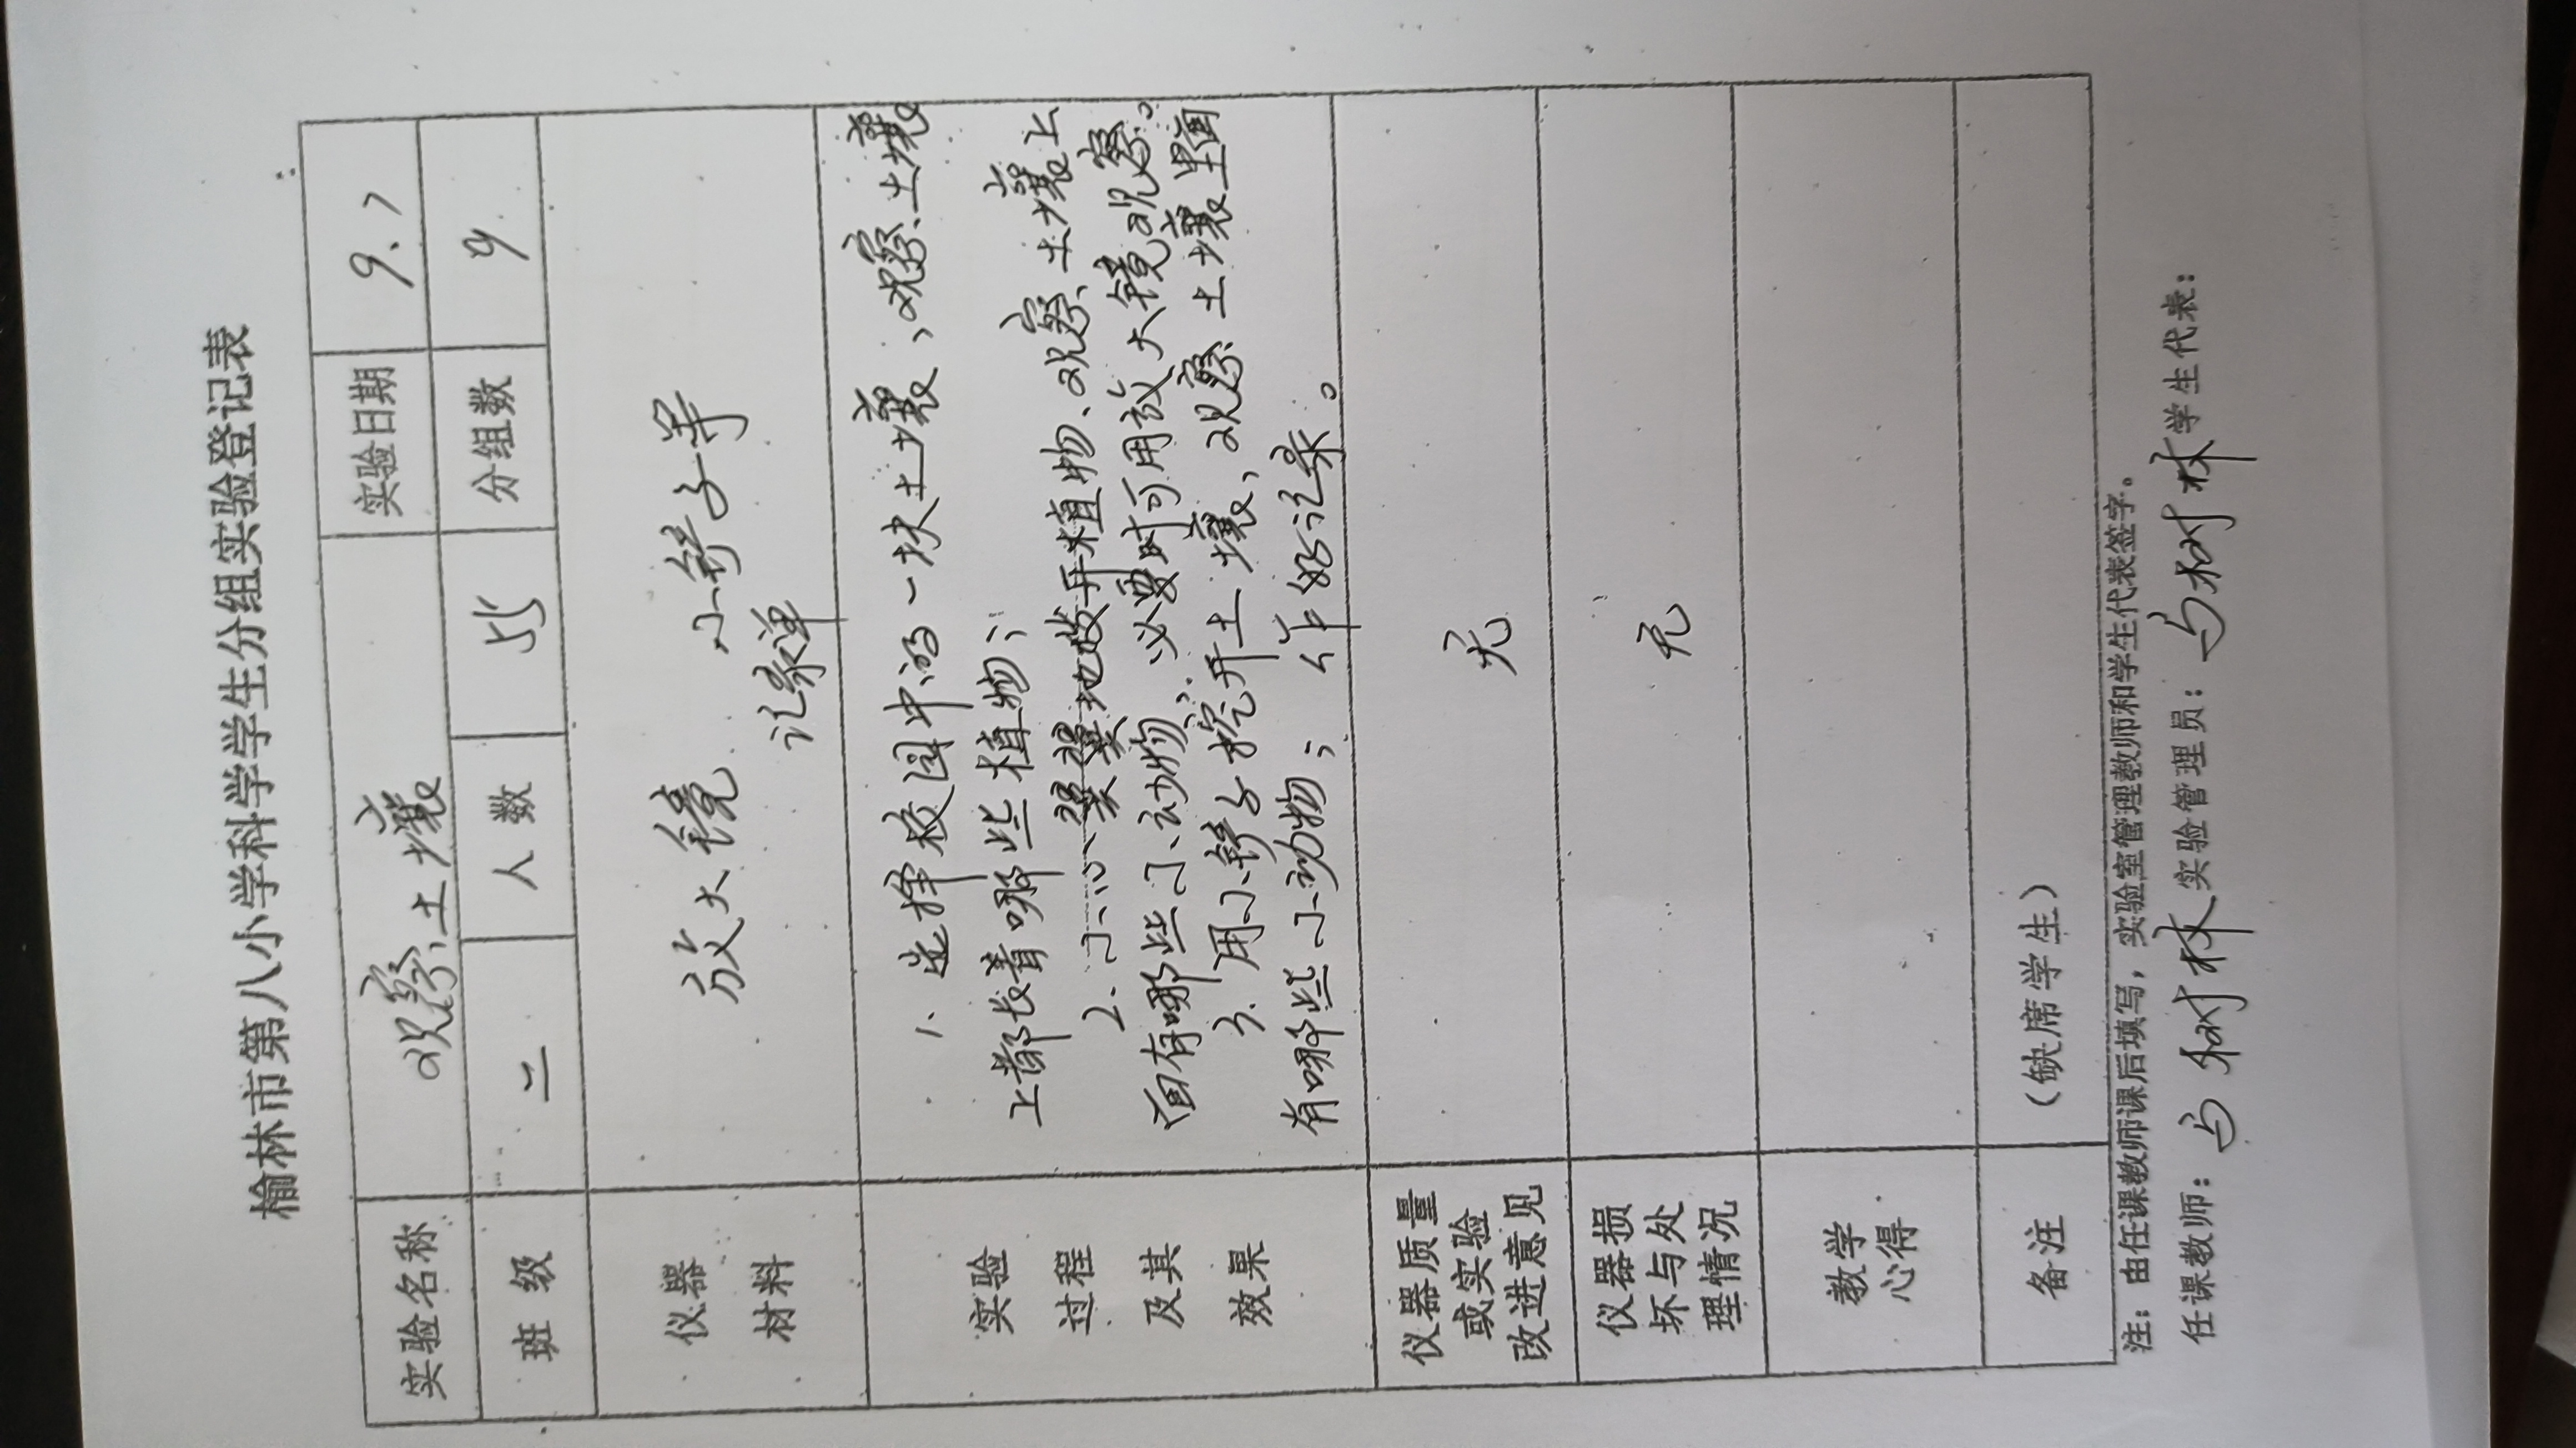 榆林市第八小学科学学生分组实验登记表
实验名称 观察土壤 实验日期 9、7
班 级 二 人 数 55 分组数 9
仪器 放大镜 小铲子等
材料 记录单
实验 1、选择校园中的一块土壤、观察土壤
过程 上都长着哪些植物；
及其 2、小心翼翼地拨开植物、观察土壤上
效果 面有哪些小动物；必要时可用放大镜观察。
3、用小铲子挖开土壤、观察土壤里面
有哪些小动物；作好记录。
仪器质量
或实验 无
改进意见
仪器损
坏与处 无
理情况
教学
心得
备注 （缺席学生）
注：由任课教师课后填写，实验室管理教师和学生代表签字。
任课教师： 树林 实验管理员： 树林 学生代表：